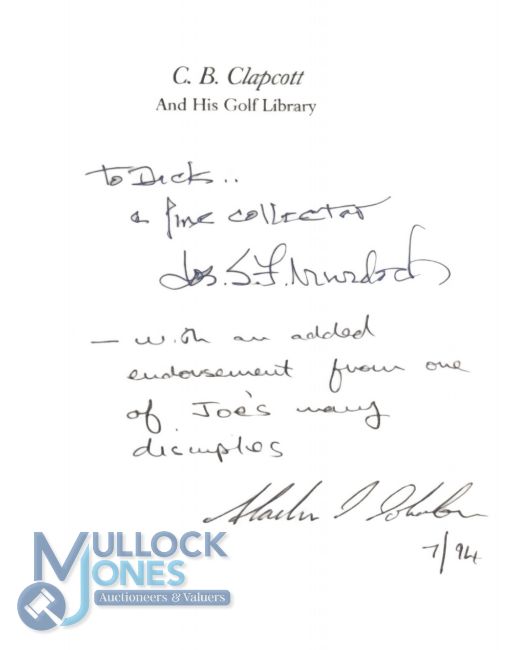 C. B. Clapcott
And His Golf Library
To Dick..
a fine collector
Jos. S. F. Murdoch
— with an added
endorsement from one
of Joe's many
disciples
7/94
MULLOCK
JONES
Auctioneers & Valuers